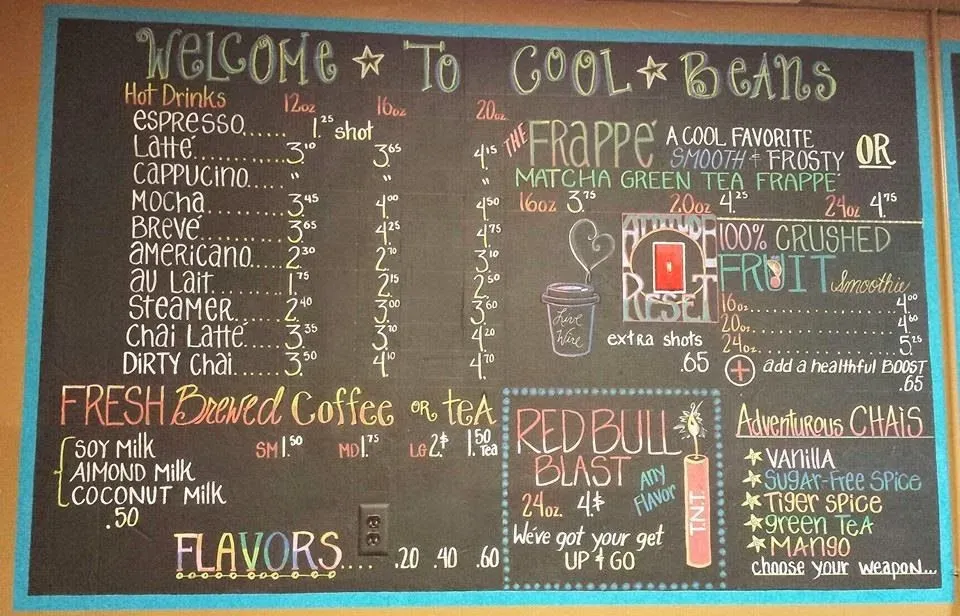 WELCOME TO COOL BEANS
Hot Drinks 12oz 16oz 20oz
espresso...... 1.25 shot
Latté 3.10 3.65 4.15
cappucino..... " " "
Mocha 3.45 4.00 4.50
Brevé 3.65 4.25 4.75
americano 2.30 2.70 3.10
au Lait 1.75 2.15 2.50
Steamer 2.40 3.00 3.60
Chai Latté 3.35 3.70 4.20
DIRTY Chai 3.50 4.10 4.70
FRESH Brewed Coffee OR teA
SOY Milk SM 1.50 MD 1.75 LG 2.$ 1.50 Tea
AlMOND Milk
COCONUT Milk
.50
FLAVORS.... .20 .40 .60
THE FRAPPÉ A COOL FAVORITE
SMOOTH & FROSTY OR
MATCHA GREEN TEA FRAPPÉ
16oz 3.75 20oz 4.25 24oz 4.75
Live Wire
ATTITUDE RESET
extra shots
.65
100% CRUSHED
FRUIT Smoothie
16oz 4.00
20oz 4.60
24oz 5.25
+ add a healthful BOOST
.65
RED BULL
BLAST
24oz. 4.$ Any Flavor
We've got your get
UP & GO
T.N.T.
Adventurous CHAIS
VANILLA
SUGAR-FREE SPICE
TIGER SPICE
green TeA
MANGO
choose your weapon...